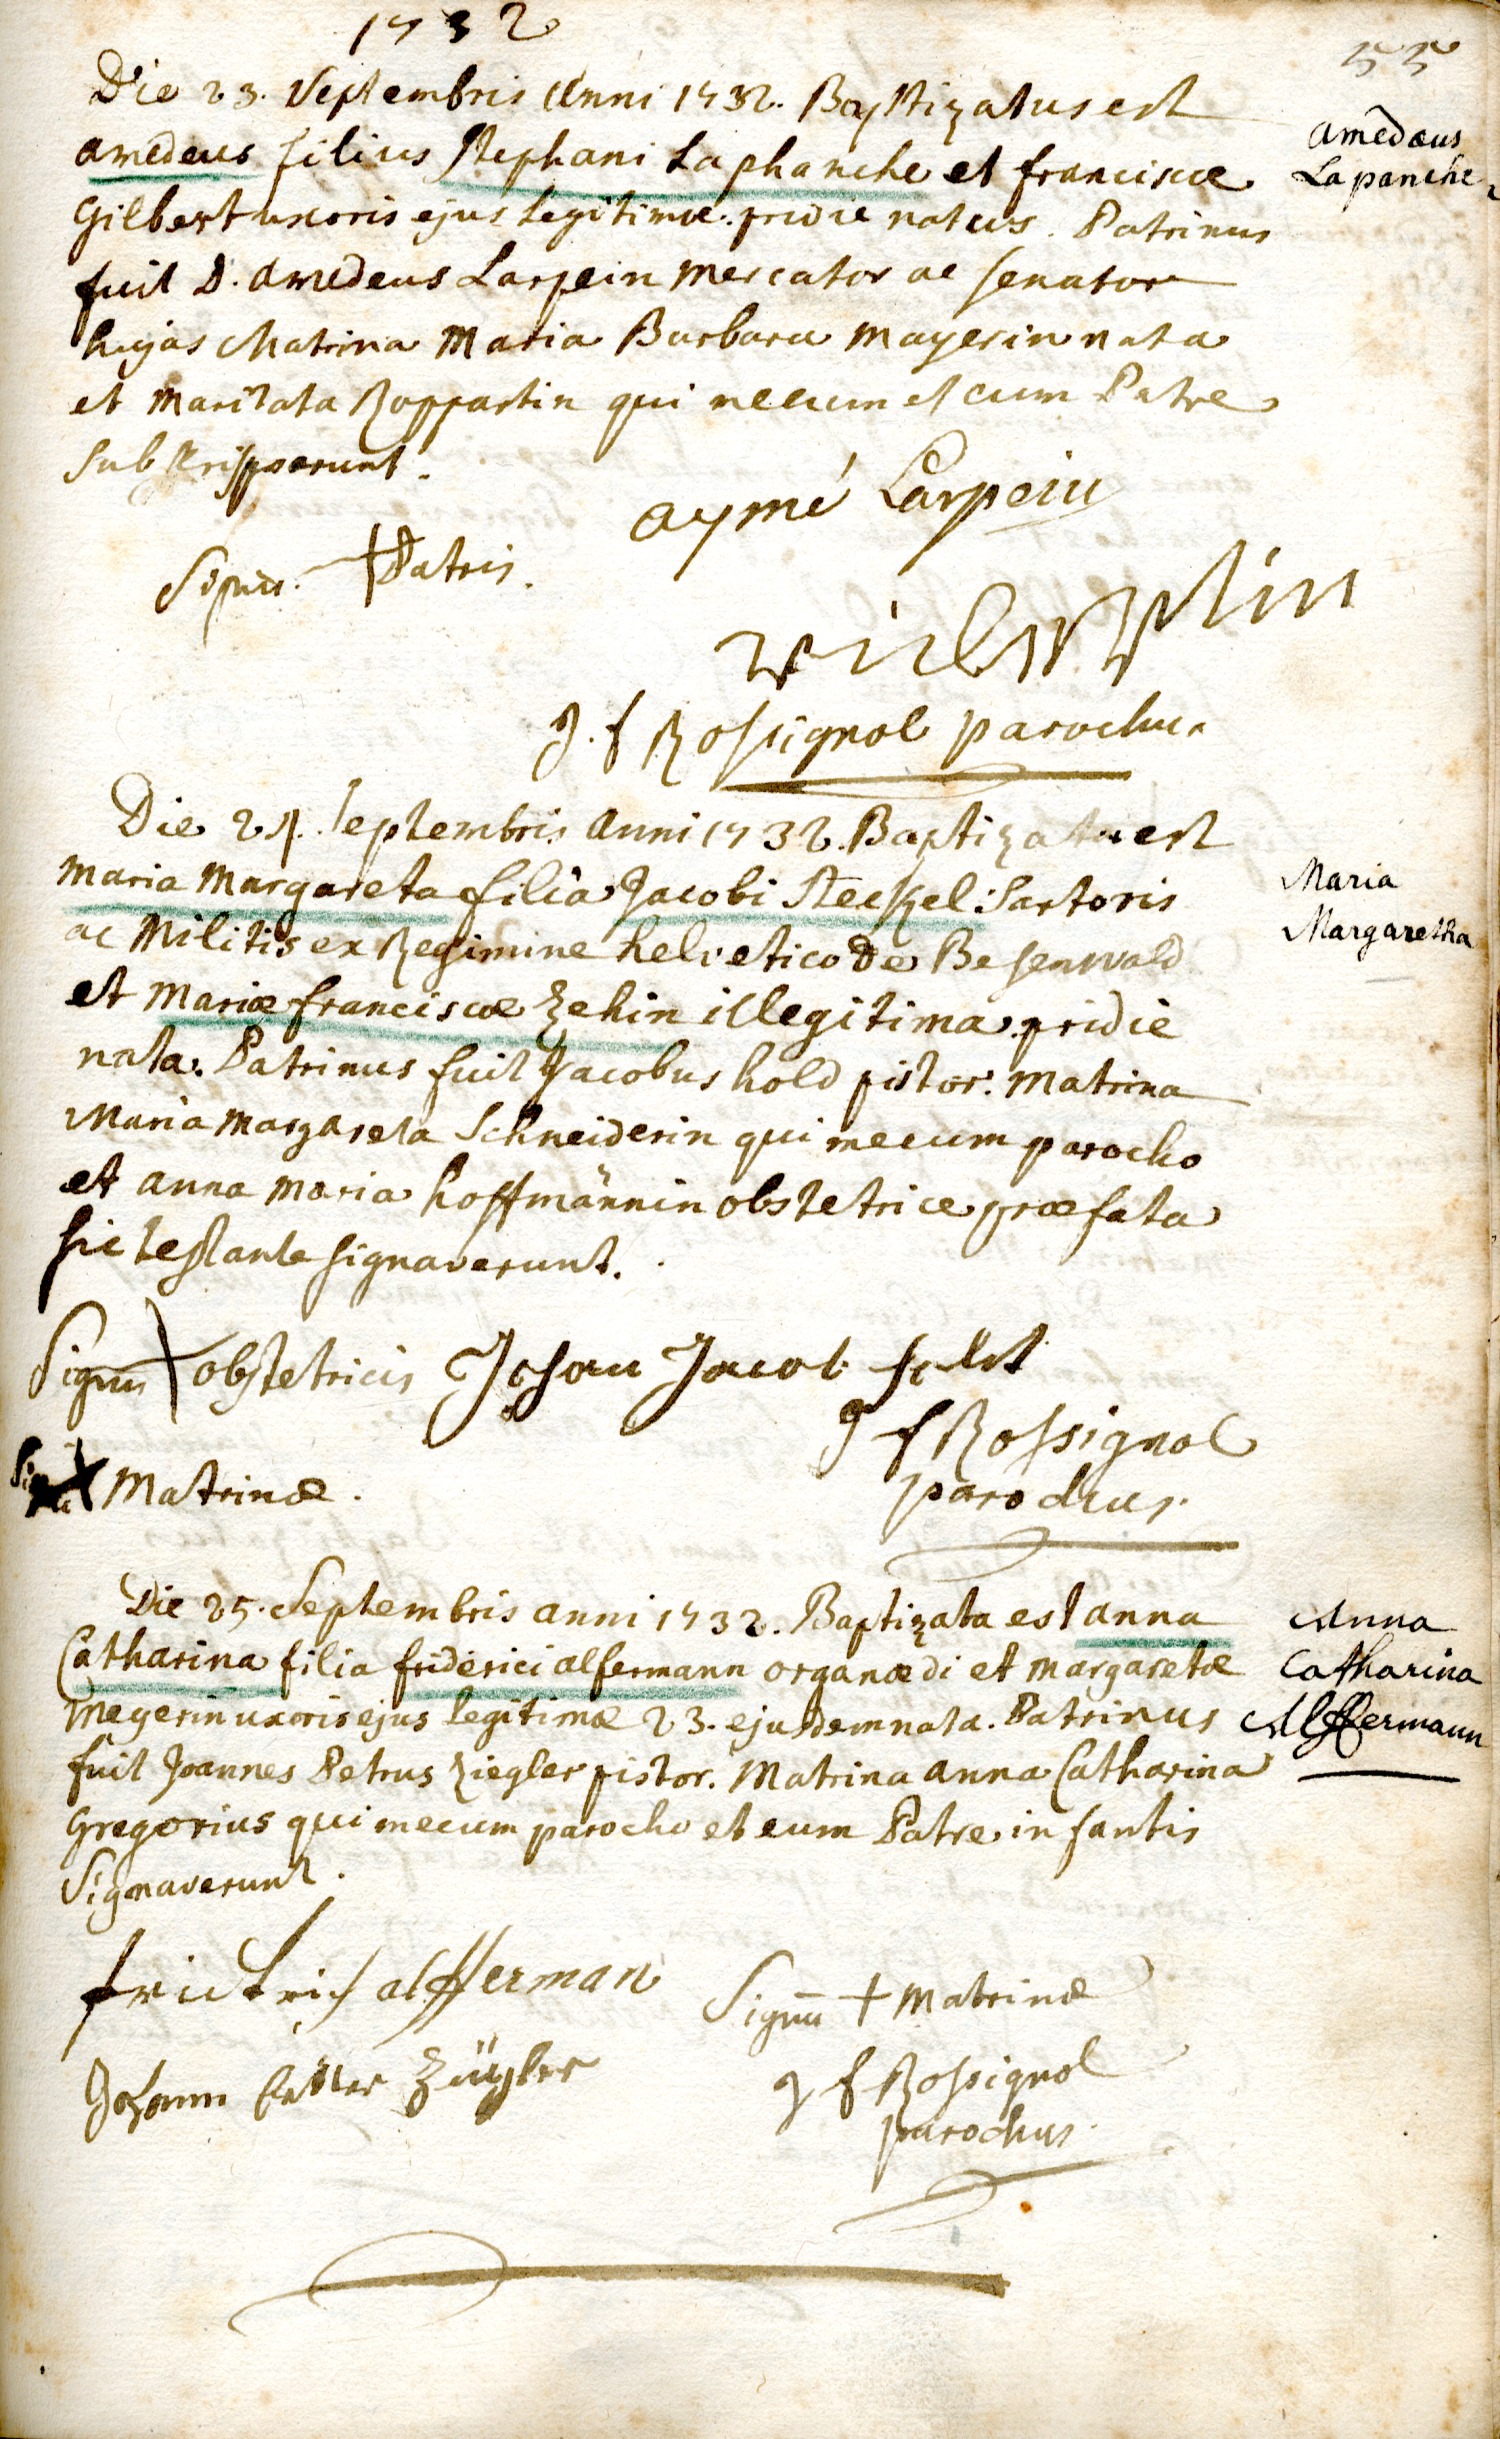 1732
55
Die 23. Septembris Anni 1732. Baptizatus est
amedeus filius Stephani Laphanche et franciscæ
Gilbert uxoris ejus legitimæ. pridie natus. Patrinus
fuit D. Amedeus Larpein mercator ac senator
hujas Matrina Maria Barbara mayerin nata
et maritata Roppartin qui mecum et cum Patre
subscripserunt.
amedæus
Lapanche
aymé Larpein
Signu. + Patris.
J. f Rossignol parochus
Die 24. Septembris anni 1732. Baptizata est
maria margareta filia Jacobi Steckel: Sartoris
ac Militis ex Regimine helvetico de Besenwald
et mariæ franciscæ Zehin illegitima. pridie
nata. Patrinus fuit Jacobus hold pistor. Matrina
Maria margareta Schneiderin qui mecum parocho
et anna maria hoffmännin obstetrice præfata
sic testante signaverunt.
Maria
Margaretha
Signu + obstetricis Johan Jacob
J f Rossignol
parochus.
Signu + Matrinæ.
Die 25. Septembris anni 1732. Baptizata est anna
Catharina filia friderici alfermann organædi et margaretæ
megerin uxoris ejus legitimæ 23. ejusdem nata. Patrinus
fuit Joannes Petrus Ziegler pistor. Matrina anna Catharina
Gregorius qui mecum parocho et cum Patre infantis
Signaverunt.
Anna
Catharina
Alffermann
fridrich alfferman
Signu + Matrinæ
Johann Petter Zügler
J f Rossignol
parochus.